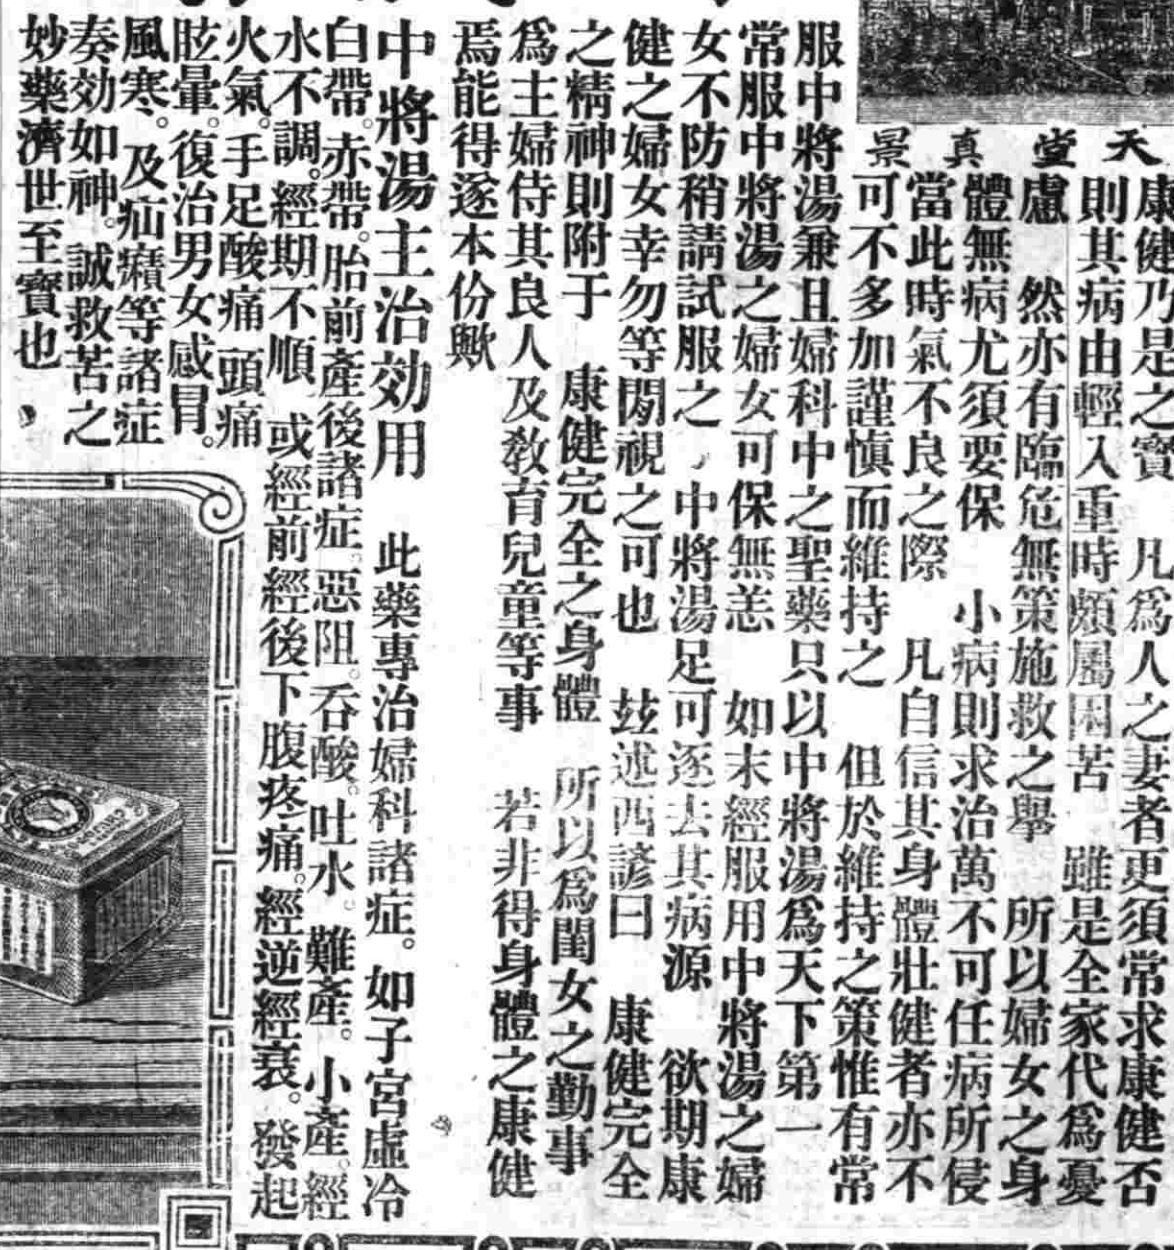 天堂真景
康健乃是之寶　凡爲人之妻者更須常求康健否
則其病由輕入重時頻屬困苦　雖是全家代爲憂
慮　然亦有臨危無策施救之舉　所以婦女之身
體無病尤須要保　小病則求治萬不可任病所侵
當此時氣不良之際　凡自信其身體壯健者亦不
可不多加謹慎而維持之　但於維持之策惟有常
服中將湯兼且婦科中之聖藥只以中將湯爲天下第一
常服中將湯之婦女可保無恙　如未經服用中將湯之婦
女不防稍請試服之　中將湯足可逐去其病源　欲期康
健之婦女幸勿等閒視之可也　茲述西諺曰　康健完全
之精神則附于　康健完全之身體　所以爲閨女之勤事
爲主婦侍其良人及敎育兒童等事　若非得身體之康健
焉能得遂本份歟
中將湯主治効用　此藥專治婦科諸症。如子宮虛冷
白帶。赤帶。胎前產後諸症。惡阻。吞酸。吐水。難產。小產。經
水不調。經期不順　或經前經後下腹疼痛。經逆經衰。發起
火氣。手足酸痛　頭痛
眩暈。復治男女感冒。
風寒。及疝癪等諸症
奏効如神。誠救苦之
妙藥濟世至寶也